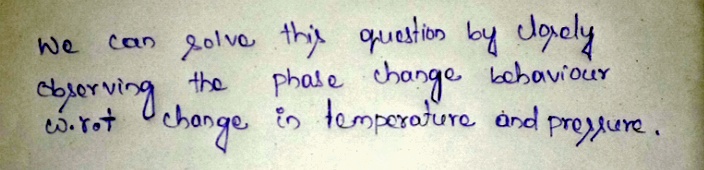 We can solve this question by closely
observing the phase change behaviour
w.r.t change in temperature and pressure.